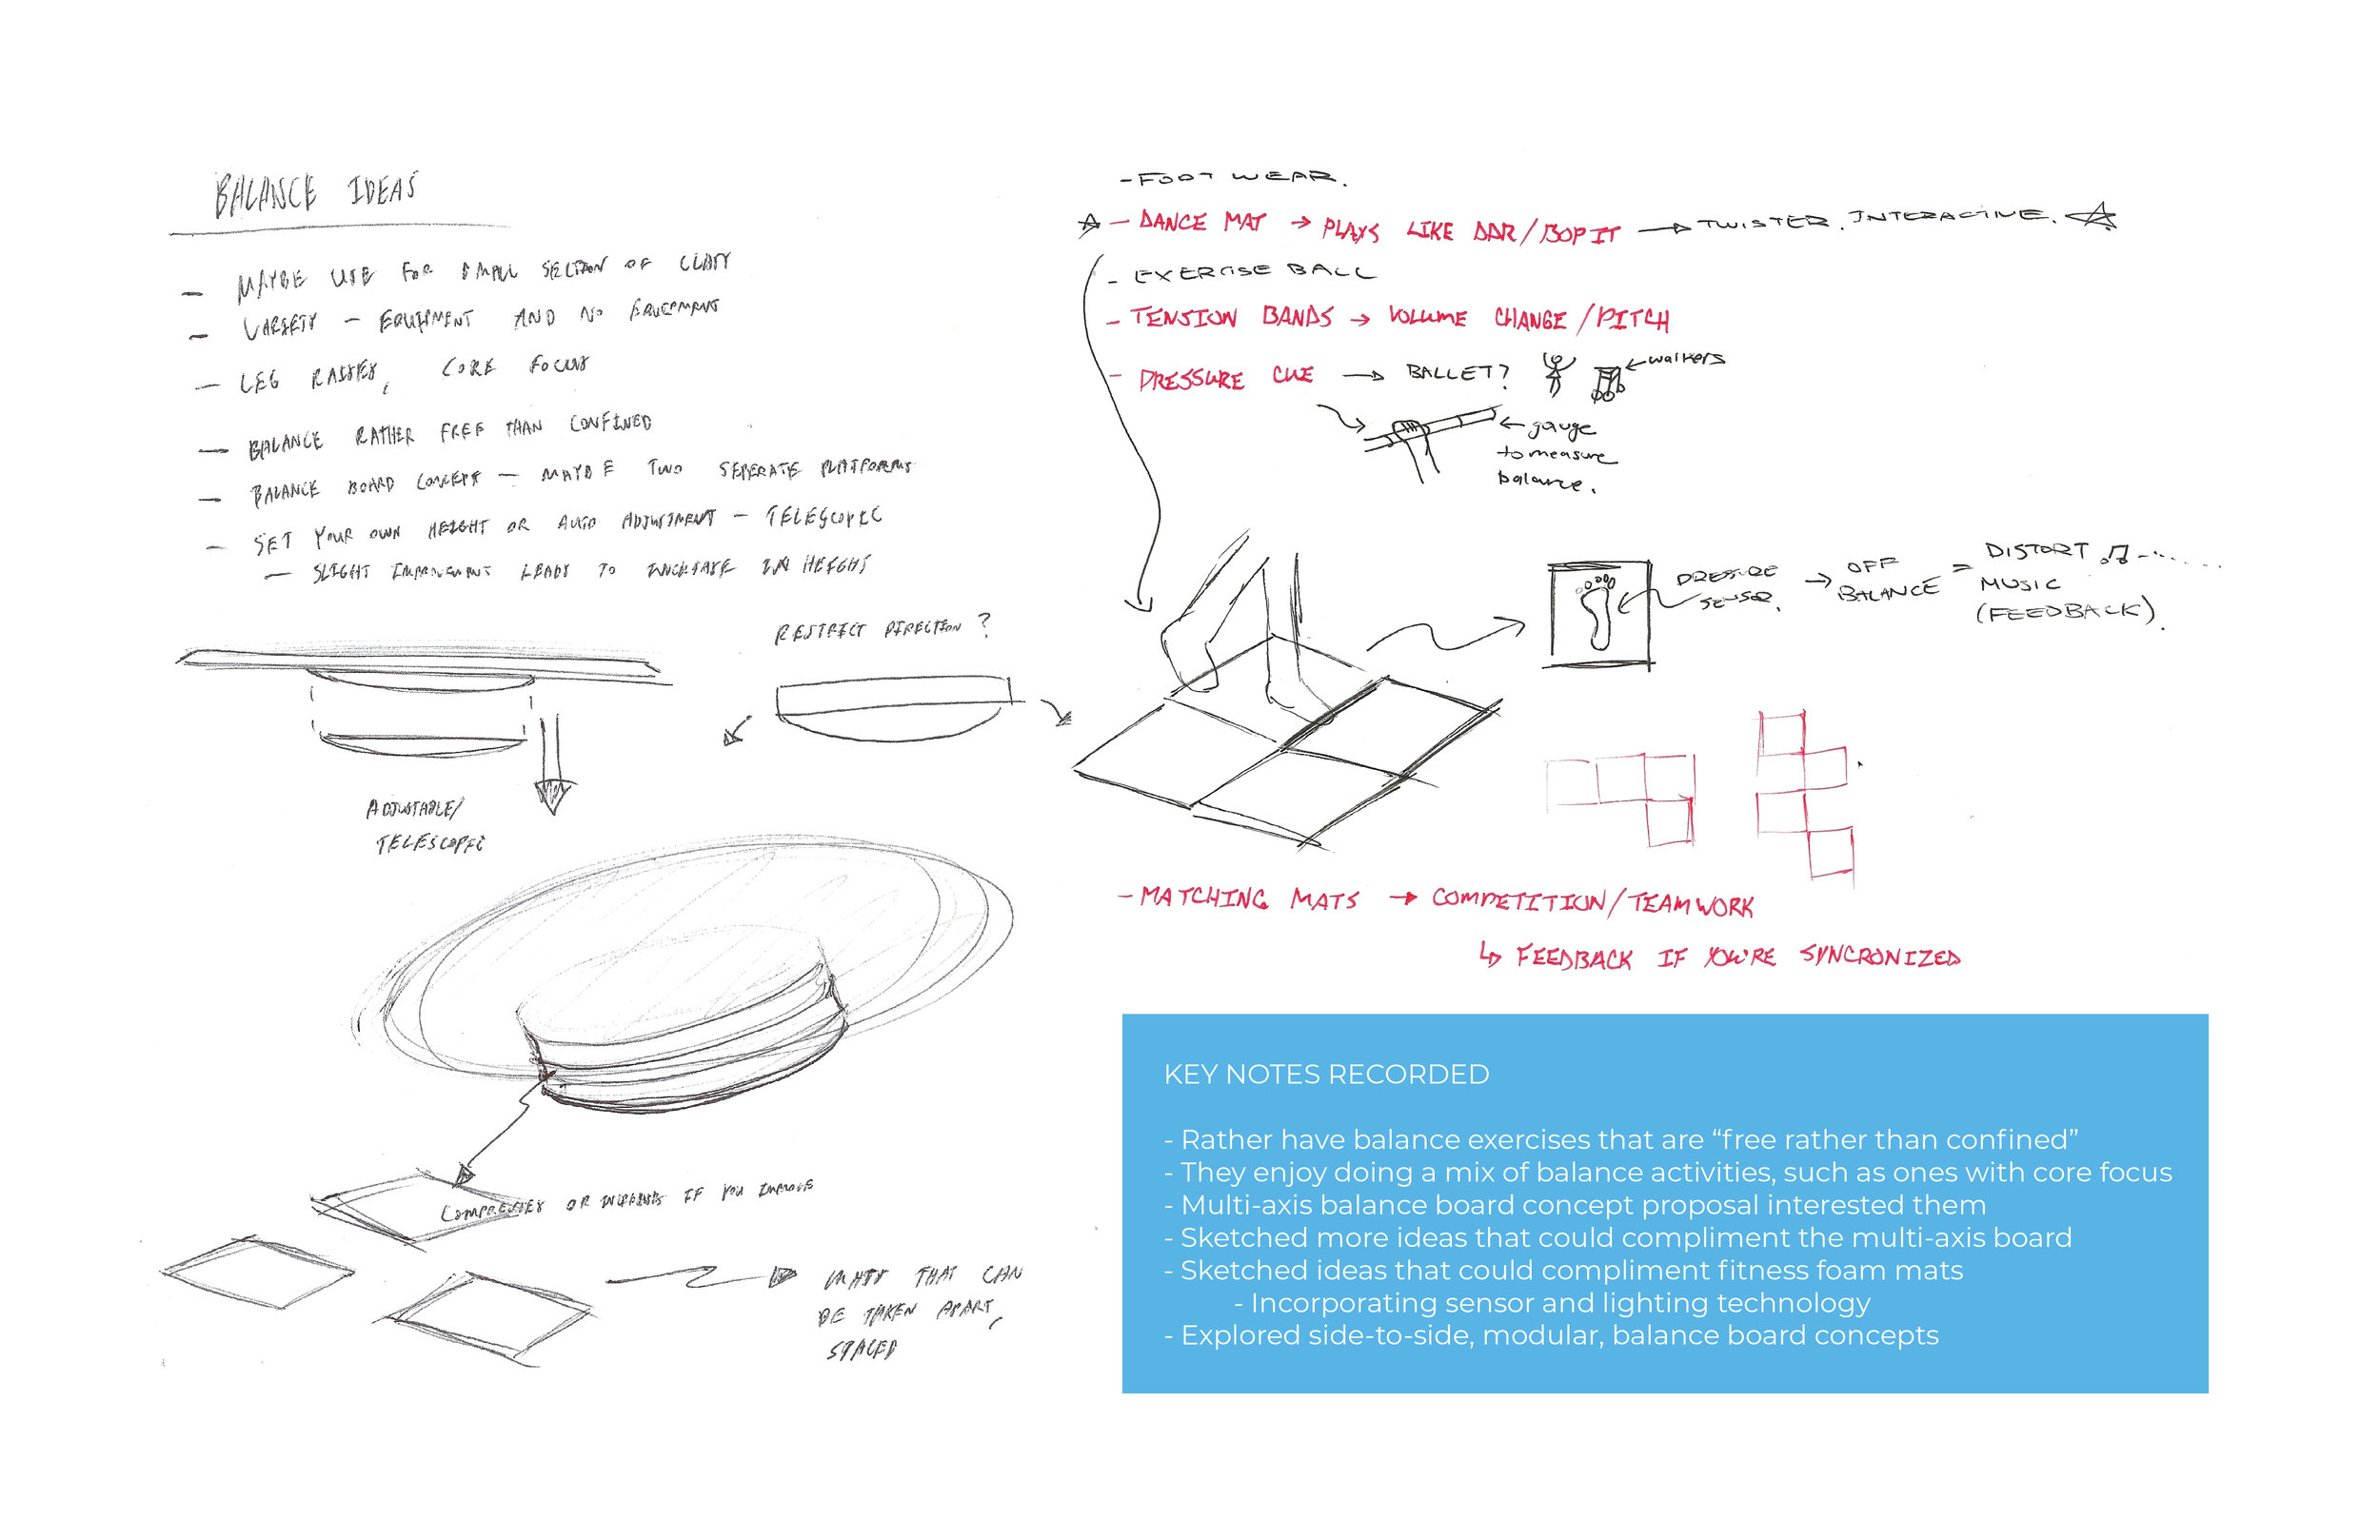 BALANCE IDEAS
- MAYBE USE FOR SMALL SECTION OF CLASS
- VARIETY - EQUIPMENT AND NO EQUIPMENT
- LEG RAISES, CORE FOCUS
- BALANCE RATHER FREE THAN CONFINED
- BALANCE BOARD CONCEPT - MAYBE TWO SEPERATE PLATFORMS
- SET YOUR OWN HEIGHT OR AUTO ADJUSTMENT - TELESCOPIC
- SLIGHT IMPROVEMENT LEADS TO INCREASE IN HEIGHT
RESTRICT DIRECTION?
ADJUSTABLE/
TELESCOPIC
COMPRESSES OR IF YOU IMPROVE
MATS THAT CAN
BE TAKEN APART,
SPACED
- FOOT WEAR.
- DANCE MAT → PLAYS LIKE DDR/BOP IT → TWISTER. INTERACTIVE.
- EXERCISE BALL
- TENSION BANDS → VOLUME CHANGE/PITCH
- PRESSURE CUE → BALLET? ← walkers
← gauge
to measure
balance.
PRESSURE
SENSOR.
→ OFF
BALANCE
= DISTORT
MUSIC
(FEEDBACK).
- MATCHING MATS → COMPETITION/TEAMWORK
↳ FEEDBACK IF YOU'RE SYNCRONIZED
KEY NOTES RECORDED
- Rather have balance exercises that are “free rather than confined”
- They enjoy doing a mix of balance activities, such as ones with core focus
- Multi-axis balance board concept proposal interested them
- Sketched more ideas that could compliment the multi-axis board
- Sketched ideas that could compliment fitness foam mats
- Incorporating sensor and lighting technology
- Explored side-to-side, modular, balance board concepts